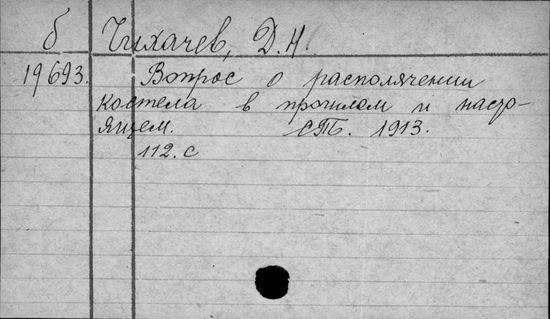 б Чихачев, Д.Н.
19693. Вопрос о располячении
костела в прошлом и насто-
ящем. СПБ. 1913.
112. с